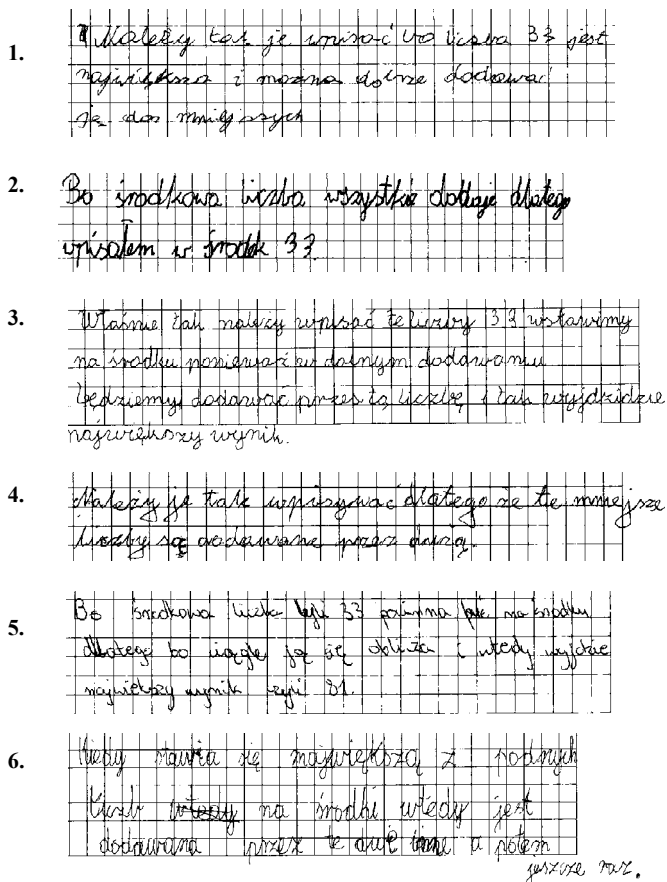 1. Należy tak je wpisać bo liczba 33 jest
największa i można dobrze dodawać
ją do mniejszych
2. Bo środkowa liczba wszystkie dodaje dlatego
wpisałem w środek 33.
3. Właśnie tak należy wpisać te liczby 33 wstawimy
na środku ponieważ w dalnym dodawaniu
będziemy dodawać przes tą liczbę i tak wyjdzidzie
największy wynik.
4. Należy je tak wpisywać dlatego że te mniejsze
liczby są dodawane przez dużą.
5. Bo środkowa liczba czyli 33 powinna być na środku
dlatego bo ciągle ją się oblicza i wtedy wyjdzie
największy wynik czyli 81.
6. Kiedy stawia się największą z podnych
liczb na środki wtedy jest
dodawana przez te dwie inne a potem
jeszcze raz.